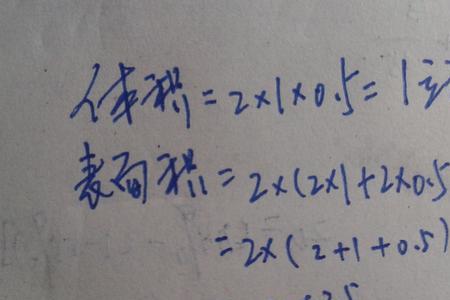 体积=2×1×0.5=1立
表面积=2×(2×1+2×0.5
=2×(2+1+0.5)